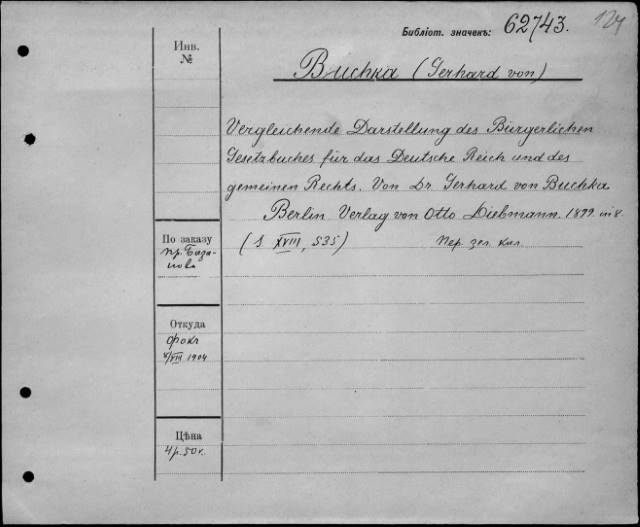 Библіот. значекъ: 62743. 124
Инв. №
Buchka (Gerhard von)
Vergleichende Darstellung des Bürgerlichen
Gesetzbuches für das Deutsche Reich und des
gemeinen Rechts. Von Dr. Gerhard von Buchka
Berlin Verlag von Otto Liebmann. 1899. in 8.
(S XVIII, 535) пер. зел. кал.
По заказу
пр. База-
нова
Откуда
Фокъ
VIII 1904
Цѣна
4 р. 50 к.